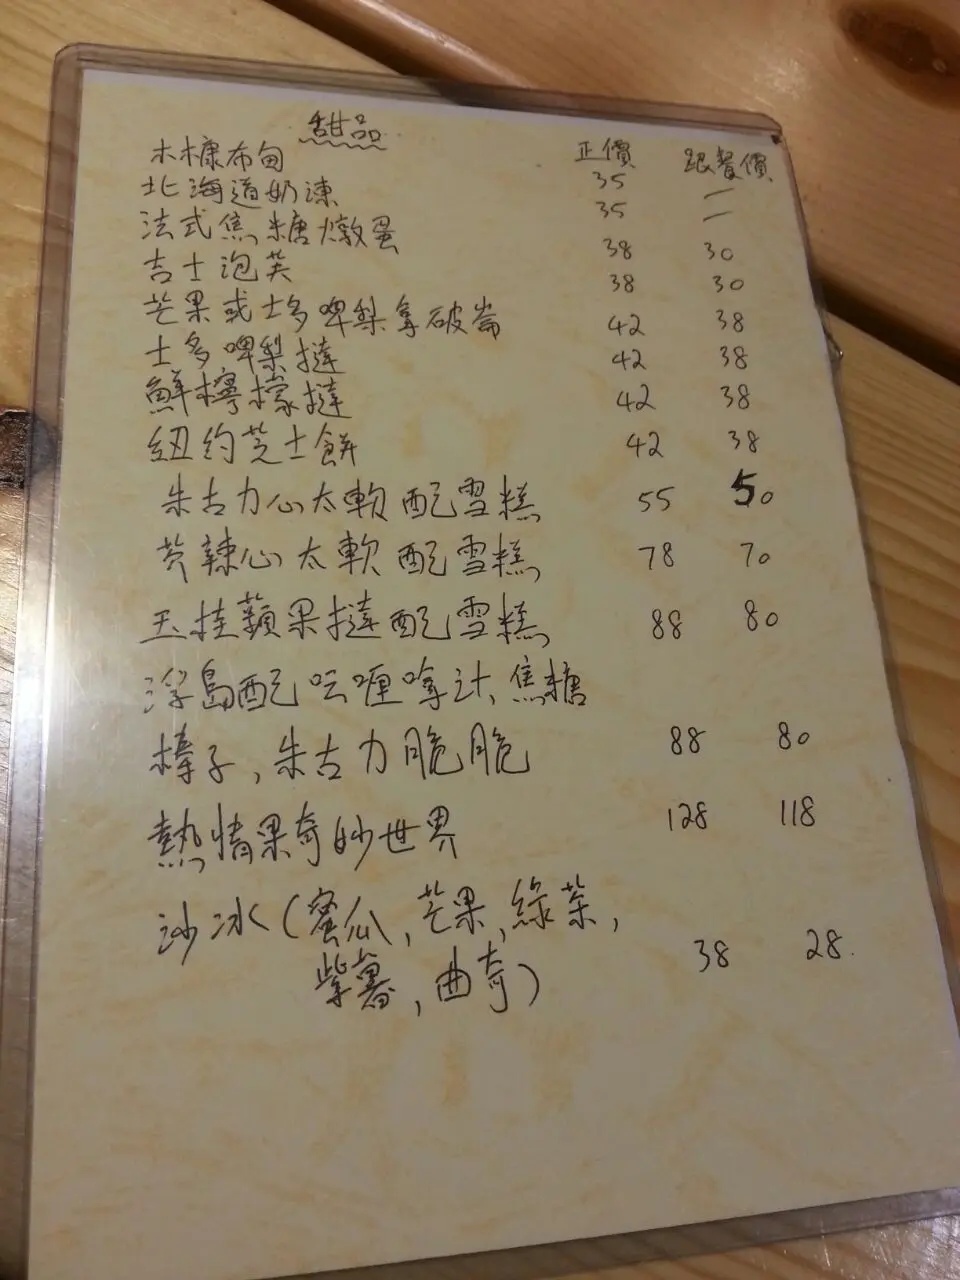 甜品
正價 跟餐價
木糠布甸 35 —
北海道奶凍 35 —
法式焦糖燉蛋 38 30
吉士泡芙 38 30
芒果或士多啤梨拿破崙 42 38
士多啤梨撻 42 38
鮮檸檬撻 42 38
紐約芝士餅 42 38
朱古力心太軟配雪糕 55 50
芥辣心太軟配雪糕 78 70
玉桂蘋果撻配雪糕 88 80
浮島配呍喱嗱汁,焦糖
榛子,朱古力脆脆 88 80
熱情果奇妙世界 128 118
沙冰(蜜瓜,芒果,綠茶,
紫薯,曲奇) 38 28